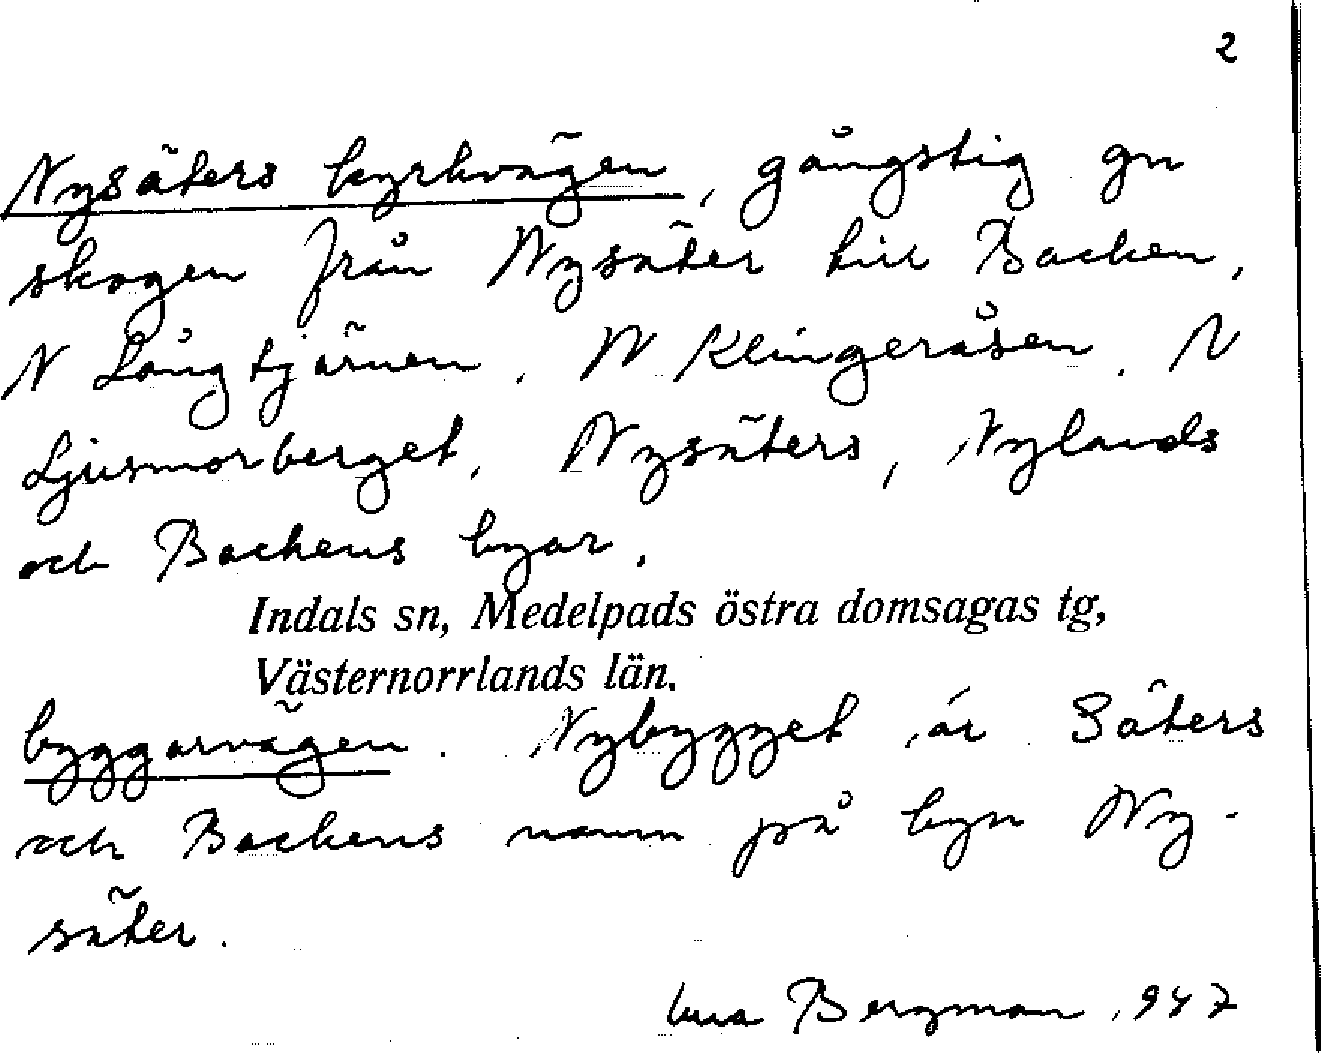 2
Nysäters kyrkvägen, gångstig gn
skogen från Nysäter till Backen,
N Långtjärnen, N Klingeråsen, N
Ljusmorberget, Nysäters, Nylands
och Backens byar.
Indals sn, Medelpads östra domsagas tg,
Västernorrlands län.
byggarvägen. Nybygget är Säters
och Backens namn på byn Ny-
säter.
Bergman, 947